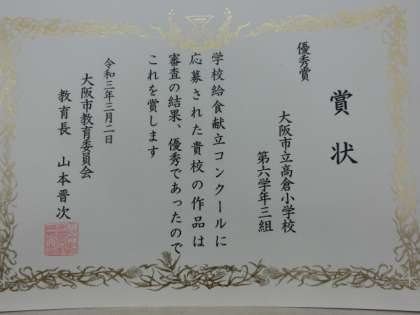 賞状
優秀賞
大阪市立高倉小学校
第六学年三組
学校給食献立コンクールに
応募された貴校の作品は
審査の結果、優秀であったので
これを賞します
令和三年三月二日
大阪市教育委員会
教育長 山本晋次